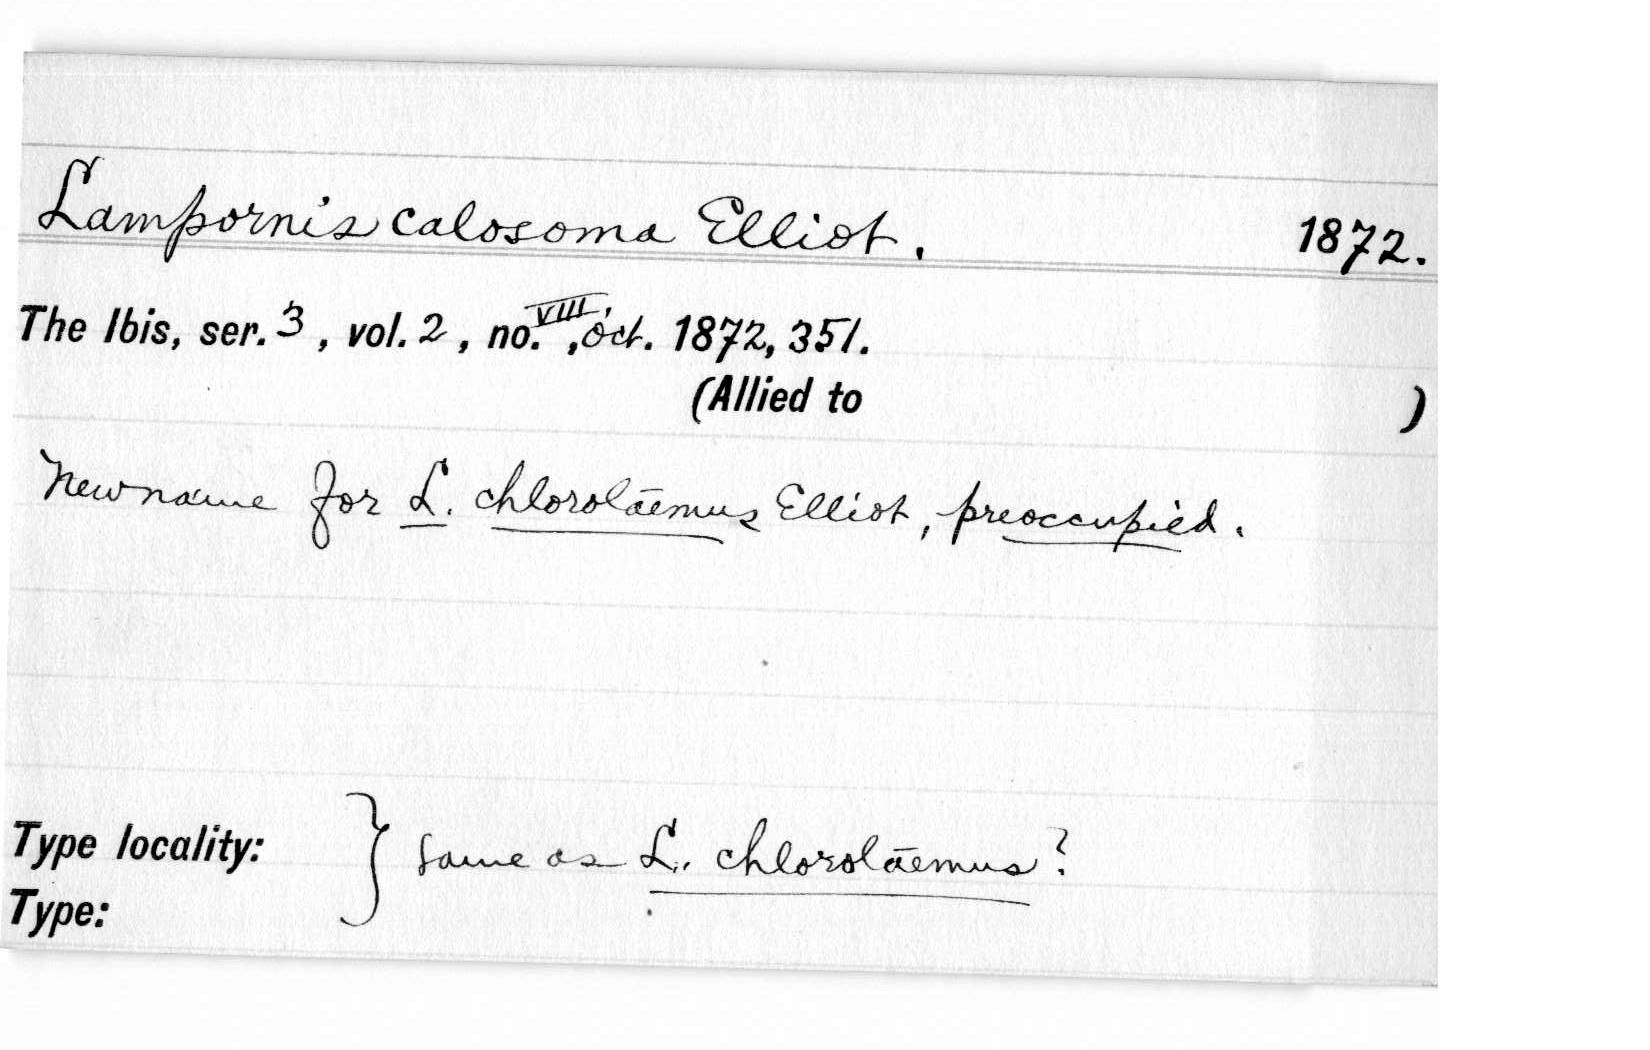 Lampornis calosoma Elliot. 1872.
The Ibis, ser. 3, vol. 2, no. VIII, Oct. 1872, 351.
(Allied to )
New name for L. chlorolaemus Elliot, preoccupied.
Type locality: } Same as L. chlorolaemus?
Type: